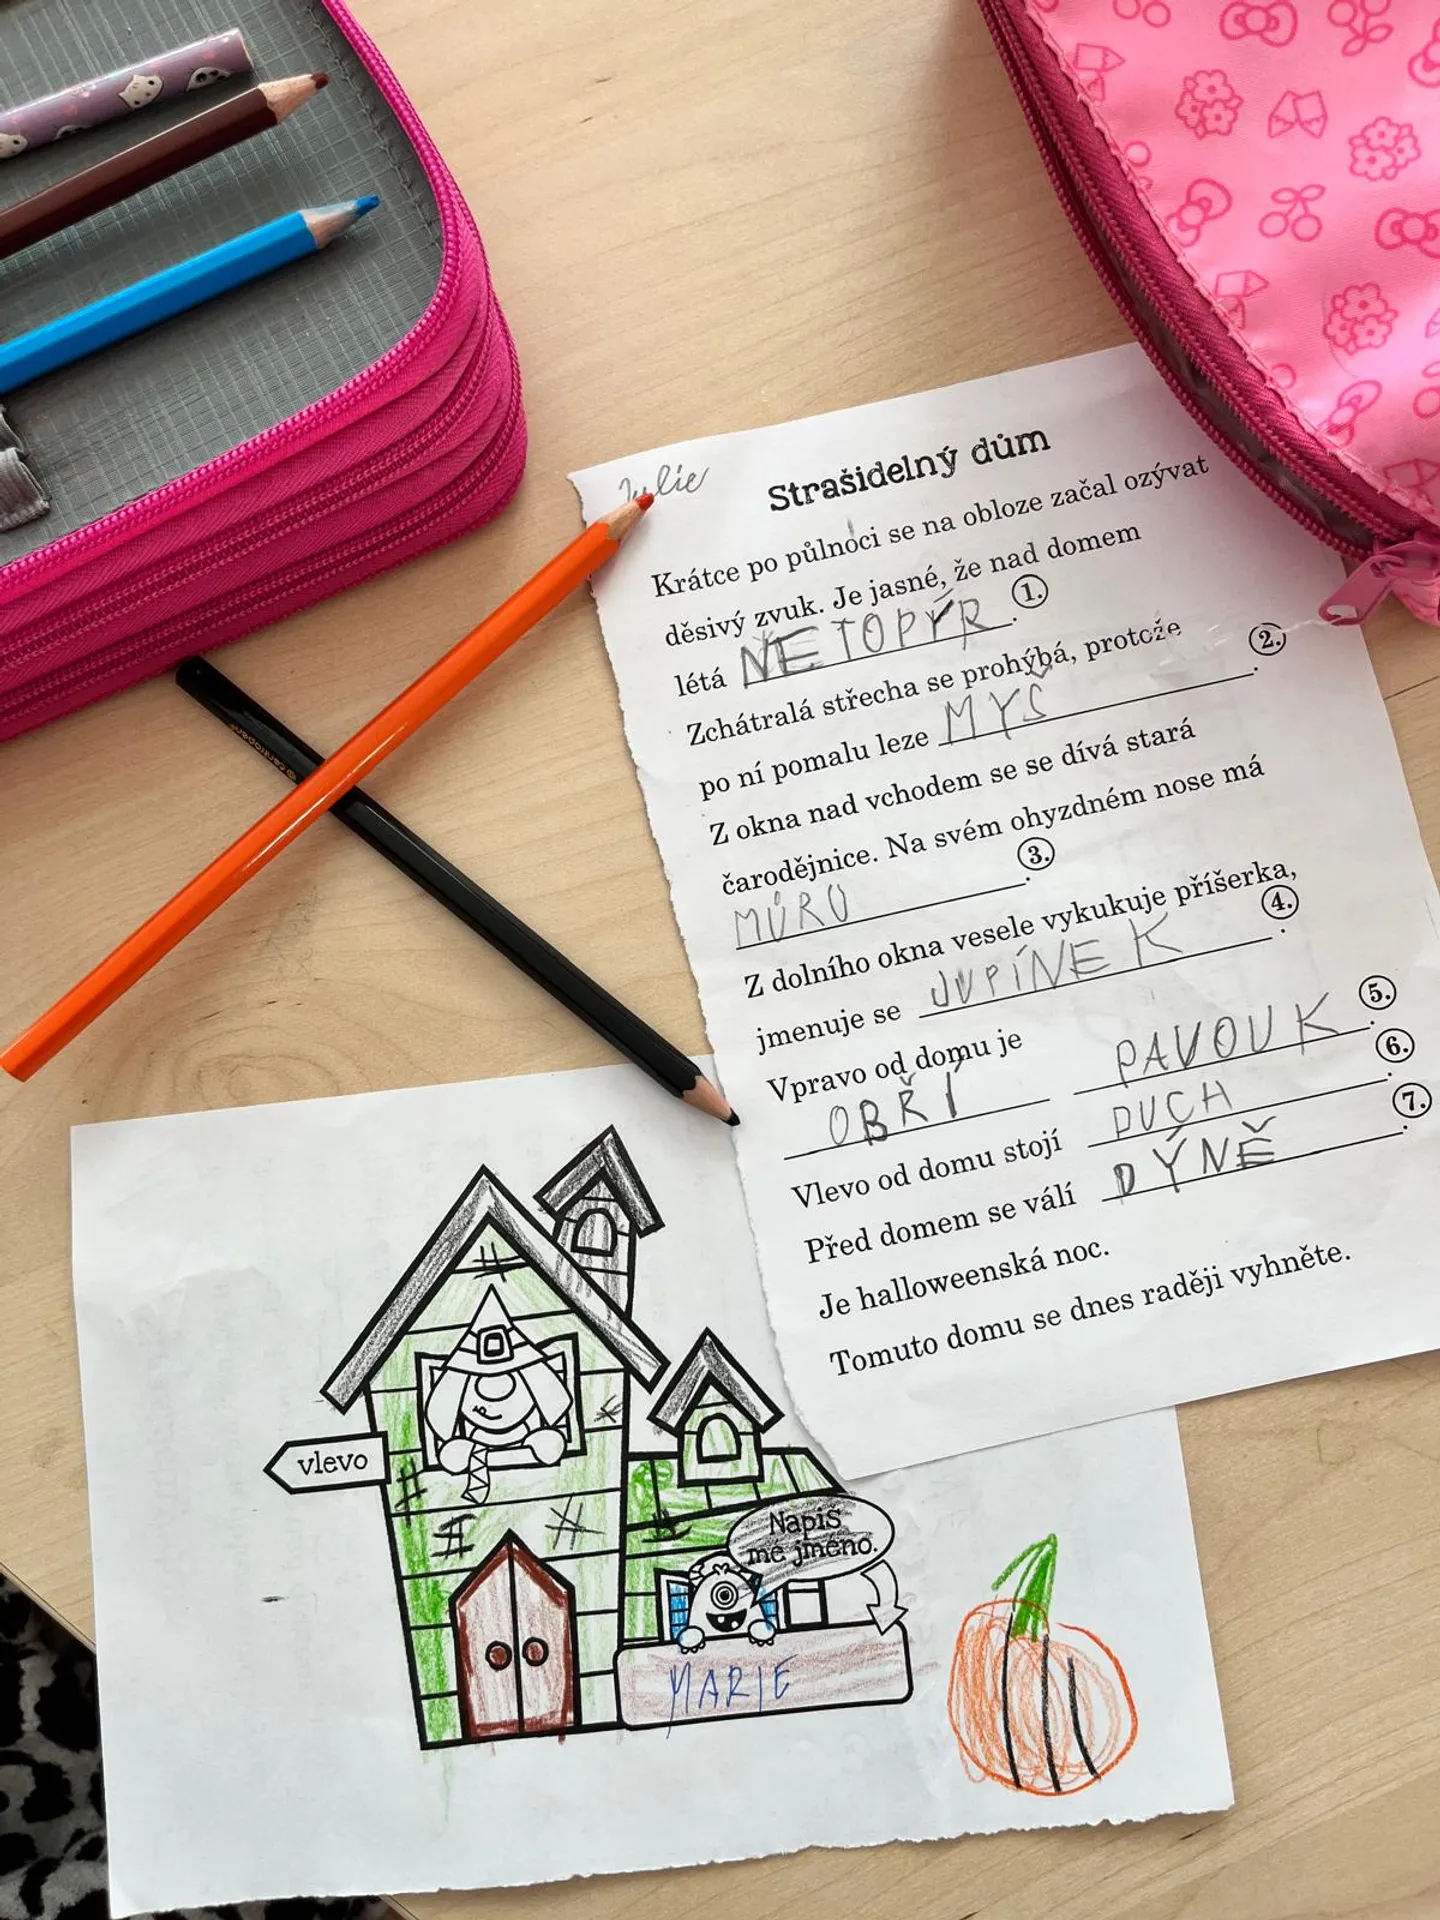 Julie
Strašidelný dům
Krátce po půlnoci se na obloze začal ozývat
děsivý zvuk. Je jasné, že nad domem
létá NETOPÝR. 1.
Zchátralá střecha se prohýbá, protože
po ní pomalu leze MYŠ. 2.
Z okna nad vchodem se se dívá stará
čarodějnice. Na svém ohyzdném nose má
MŮRU. 3.
Z dolního okna vesele vykukuje příšerka,
jmenuje se JUPÍNEK. 4.
Vpravo od domu je
OBŘÍ PAVOUK. 5.
Vlevo od domu stojí DUCH. 6.
Před domem se válí DÝNĚ. 7.
Je halloweenská noc.
Tomuto domu se dnes raději vyhněte.
vlevo
Napiš
mé jméno.
MARIE